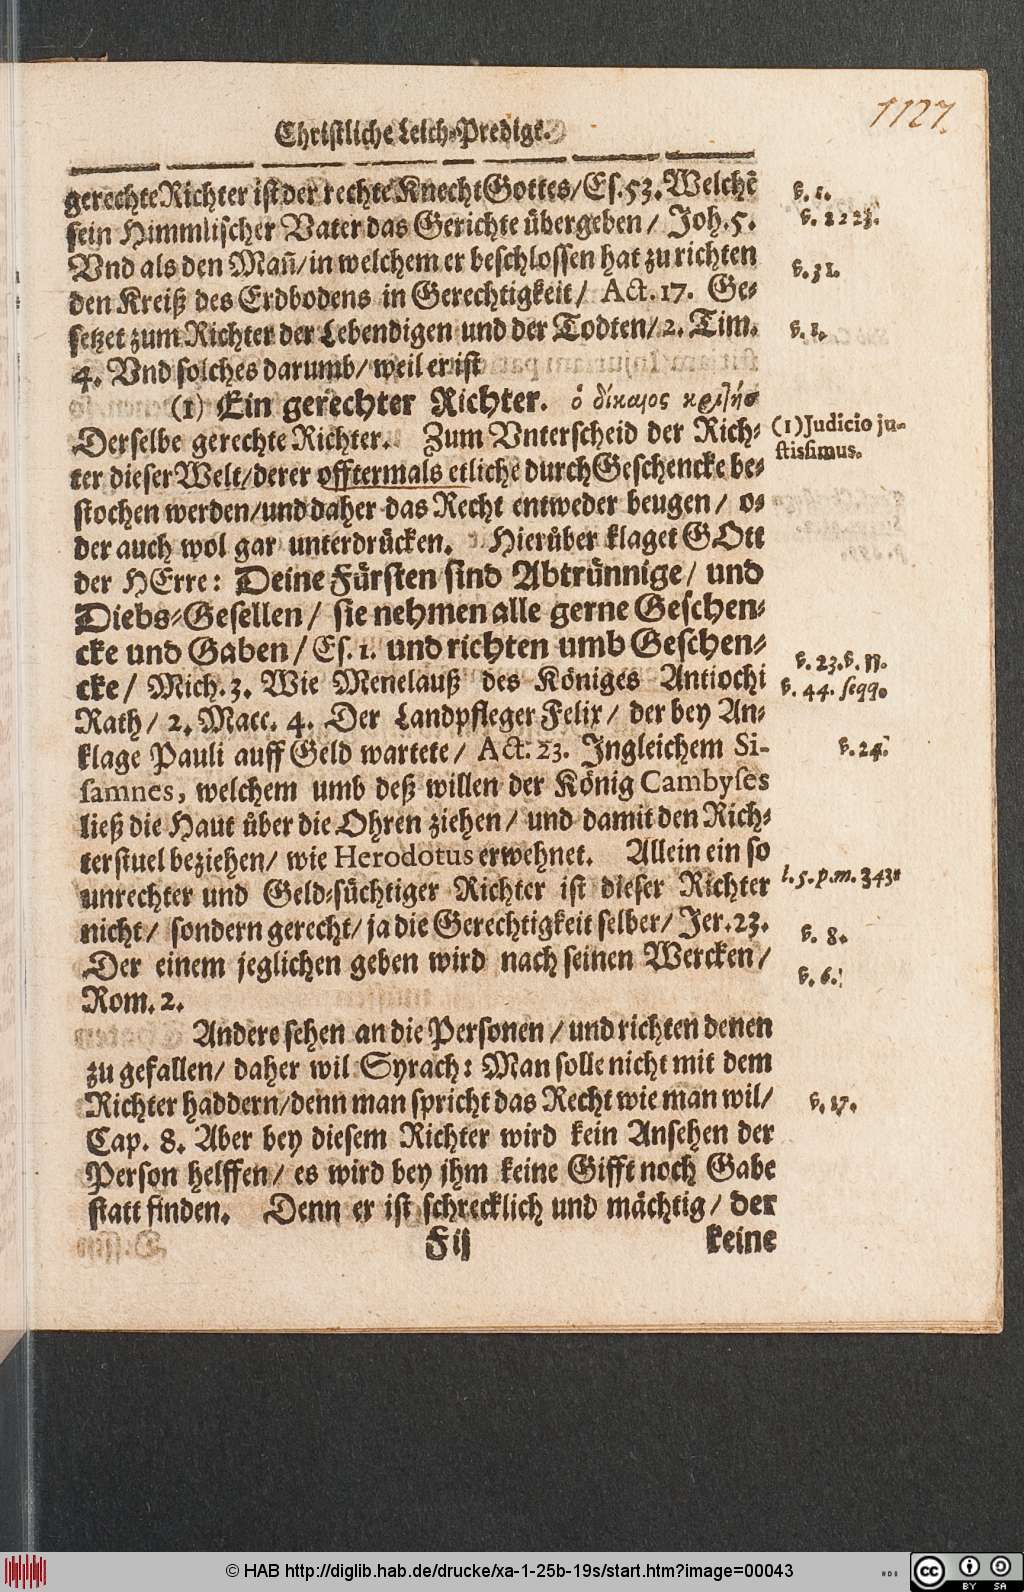 1127.
Christliche Leich-Predigt.
gerechte Richter ist der rechte Knecht Gottes/ Es. 53. Welchẽ
v. 1.
sein Himmlischer Vater das Gerichte übergeben/ Joh. 5.
v. 22 23.
Vnd als den Mañ/ in welchem er beschlossen hat zu richten
v. 31.
den Kreiß des Erdbodens in Gerechtigkeit/ Act. 17. Ge-
setzet zum Richter der Lebendigen und der Todten/ 2. Tim.
v. 1.
4. Vnd solches darumb/ weil er ist
(1) Ein gerechter Richter. ὁ δίκαιος κριτής
(1) Judicio ju-
stissimus.
Derselbe gerechte Richter. Zum Vnterscheid der Rich-
ter dieser Welt/ derer offtermals etliche durch Geschencke be-
stochen werden/ und daher das Recht entweder beugen/ o-
der auch wol gar unterdrücken. Hierüber klaget GOtt
der HErre: Deine Fürsten sind Abtrünnige/ und
Diebs-Gesellen/ sie nehmen alle gerne Geschen-
cke und Gaben/ Es. 1. und richten umb Geschen-
v. 23. v. 11.
cke/ Mich. 3. Wie Menelauß des Königes Antiochi
v. 44. seqq.
Rath/ 2. Macc. 4. Der Landpfleger Felix/ der bey An-
klage Pauli auff Geld wartete/ Act. 23. Ingleichem Si-
v. 24.
samnes, welchem umb deß willen der König Cambyses
ließ die Haut über die Ohren ziehen/ und damit den Rich-
terstuel beziehen/ wie Herodotus erwehnet. Allein ein so
l. 5. p. m. 343.
unrechter und Geld-süchtiger Richter ist dieser Richter
nicht/ sondern gerecht/ ja die Gerechtigkeit selber/ Jer. 23.
v. 8.
Der einem jeglichen geben wird nach seinen Wercken/
v. 6.
Rom. 2.
Andere sehen an die Personen/ und richten denen
zu gefallen/ daher wil Syrach: Man solle nicht mit dem
Richter haddern/ denn man spricht das Recht wie man wil/
v. 17.
Cap. 8. Aber bey diesem Richter wird kein Ansehen der
Person helffen/ es wird bey jhm keine Gifft noch Gabe
statt finden. Denn er ist schrecklich und mächtig/ der
F ij
keine
© HAB http://diglib.hab.de/drucke/xa-1-25b-19s/start.htm?image=00043
cc BY SA